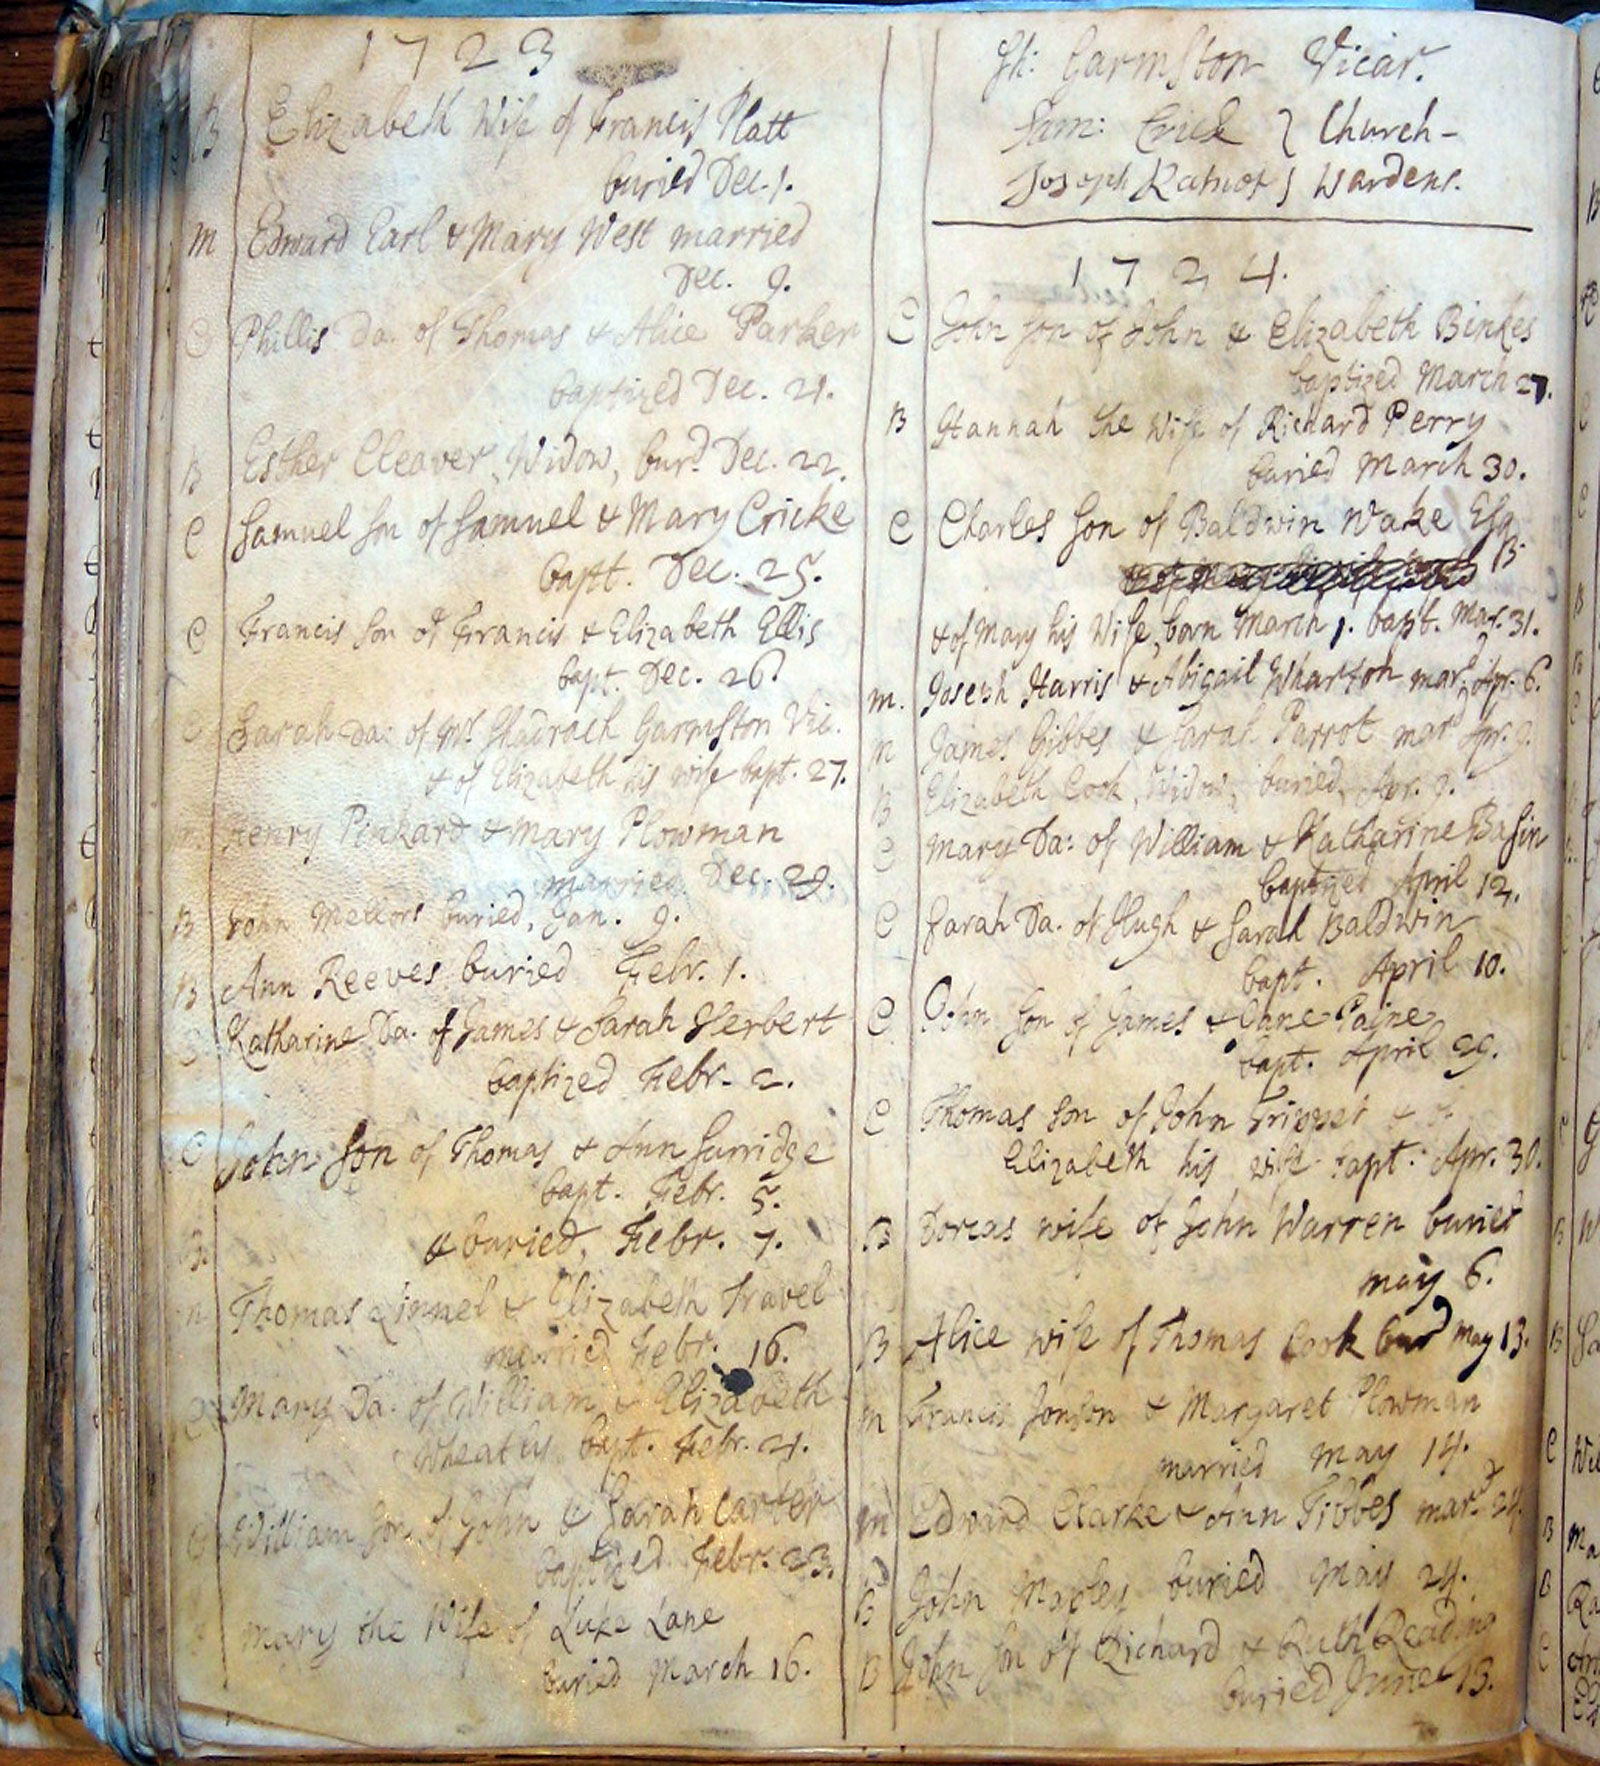 1723
B Elizabeth Wife of Francis Platt
buried Dec. 1.
m Edward Earl & Mary West married
Dec. 9.
C Phillis Da: of Thomas & Alice Parker
baptized Dec. 21.
B Esther Cleaver, Widow, burd. Dec. 22.
C Samuel Son of Samuel & Mary Cricke
bapt. Dec. 25.
C Francis Son of Francis & Elizabeth Ellis
bapt. Dec. 26.
C Sarah Da: of Mr Shadrach Garmston Vic.
& of Elizabeth his wife bapt. 27.
m Henry Pinkard & Mary Plowman
married Dec. 29.
B John Mellors buried, Jan. 9.
B Ann Reeves buried Febr. 1.
C Katharine Da. of James & Sarah Herbert
baptized Febr. 2.
C John Son of Thomas & Ann Surridge
bapt. Febr. 5.
B. & buried, Febr. 7.
m Thomas Linnel & Elizabeth Travel
married Febr. 16.
C Mary Da. of William & Elizabeth
Wheatly bapt. Febr. 21.
C William Son of John & Sarah Carter
baptized Febr. 23.
B Mary the Wife of Luke Lane
buried March 16.
Sh: Garmston Vicar.
Sam: Crick } Church-
Joseph } Wardens.
1724.
C John Son of John & Elizabeth Binkes
baptized March 27.
B Hannah the Wife of Richard Perry
buried March 30.
C Charles Son of Baldwin Wake Esq
& of Mary his Wife, born March 1. bapt. Mar. 31.
m. Joseph Harris & Abigail Wharton mard. Apr. 6.
m James Gibbes & Sarah Parrot mard Apr. 9.
B Elizabeth Cook, Widow, buried, Apr. 9.
C Mary Da: of William & Katharine Basin
baptized April 12.
C Sarah Da. of Hugh & Sarah Baldwin
bapt. April 10.
C John Son of James & Jane Paine
bapt. April 29.
C Thomas Son of John Trippet & of
Elizabeth his wife bapt. Apr. 30.
B Dorcas wife of John Warren buried
may 6.
B Alice wife of Thomas Cook burd may 13.
m Francis Jonson & Margaret Plowman
married May 14.
m Edward Clarke & Ann Tibbes mard. 24.
B John Mapley buried May 24.
B John Son of Richard & Ruth Reading
buried June 13.